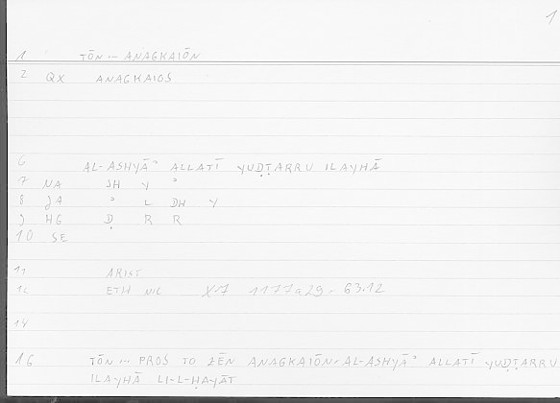 1
1 TŌN ... ANAGKAIŌN
2 QX ANAGKAIOS
6 AL-ASHYĀʾ ALLATĪ YUḌṬARRU ILAYHĀ
7 NA SH Y ʾ
8 JA ʾ L DH Y
9 HG Ḍ R R
10 SE
11 ARIST
12 ETH NIC X.7 1177a29 - 63.12
14
16 TŌN ... PROS TO ZĒN ANAGKAIŌN: AL-ASHYĀʾ ALLATĪ YUḌṬARRU
ILAYHĀ LI-L-ḤAYĀT